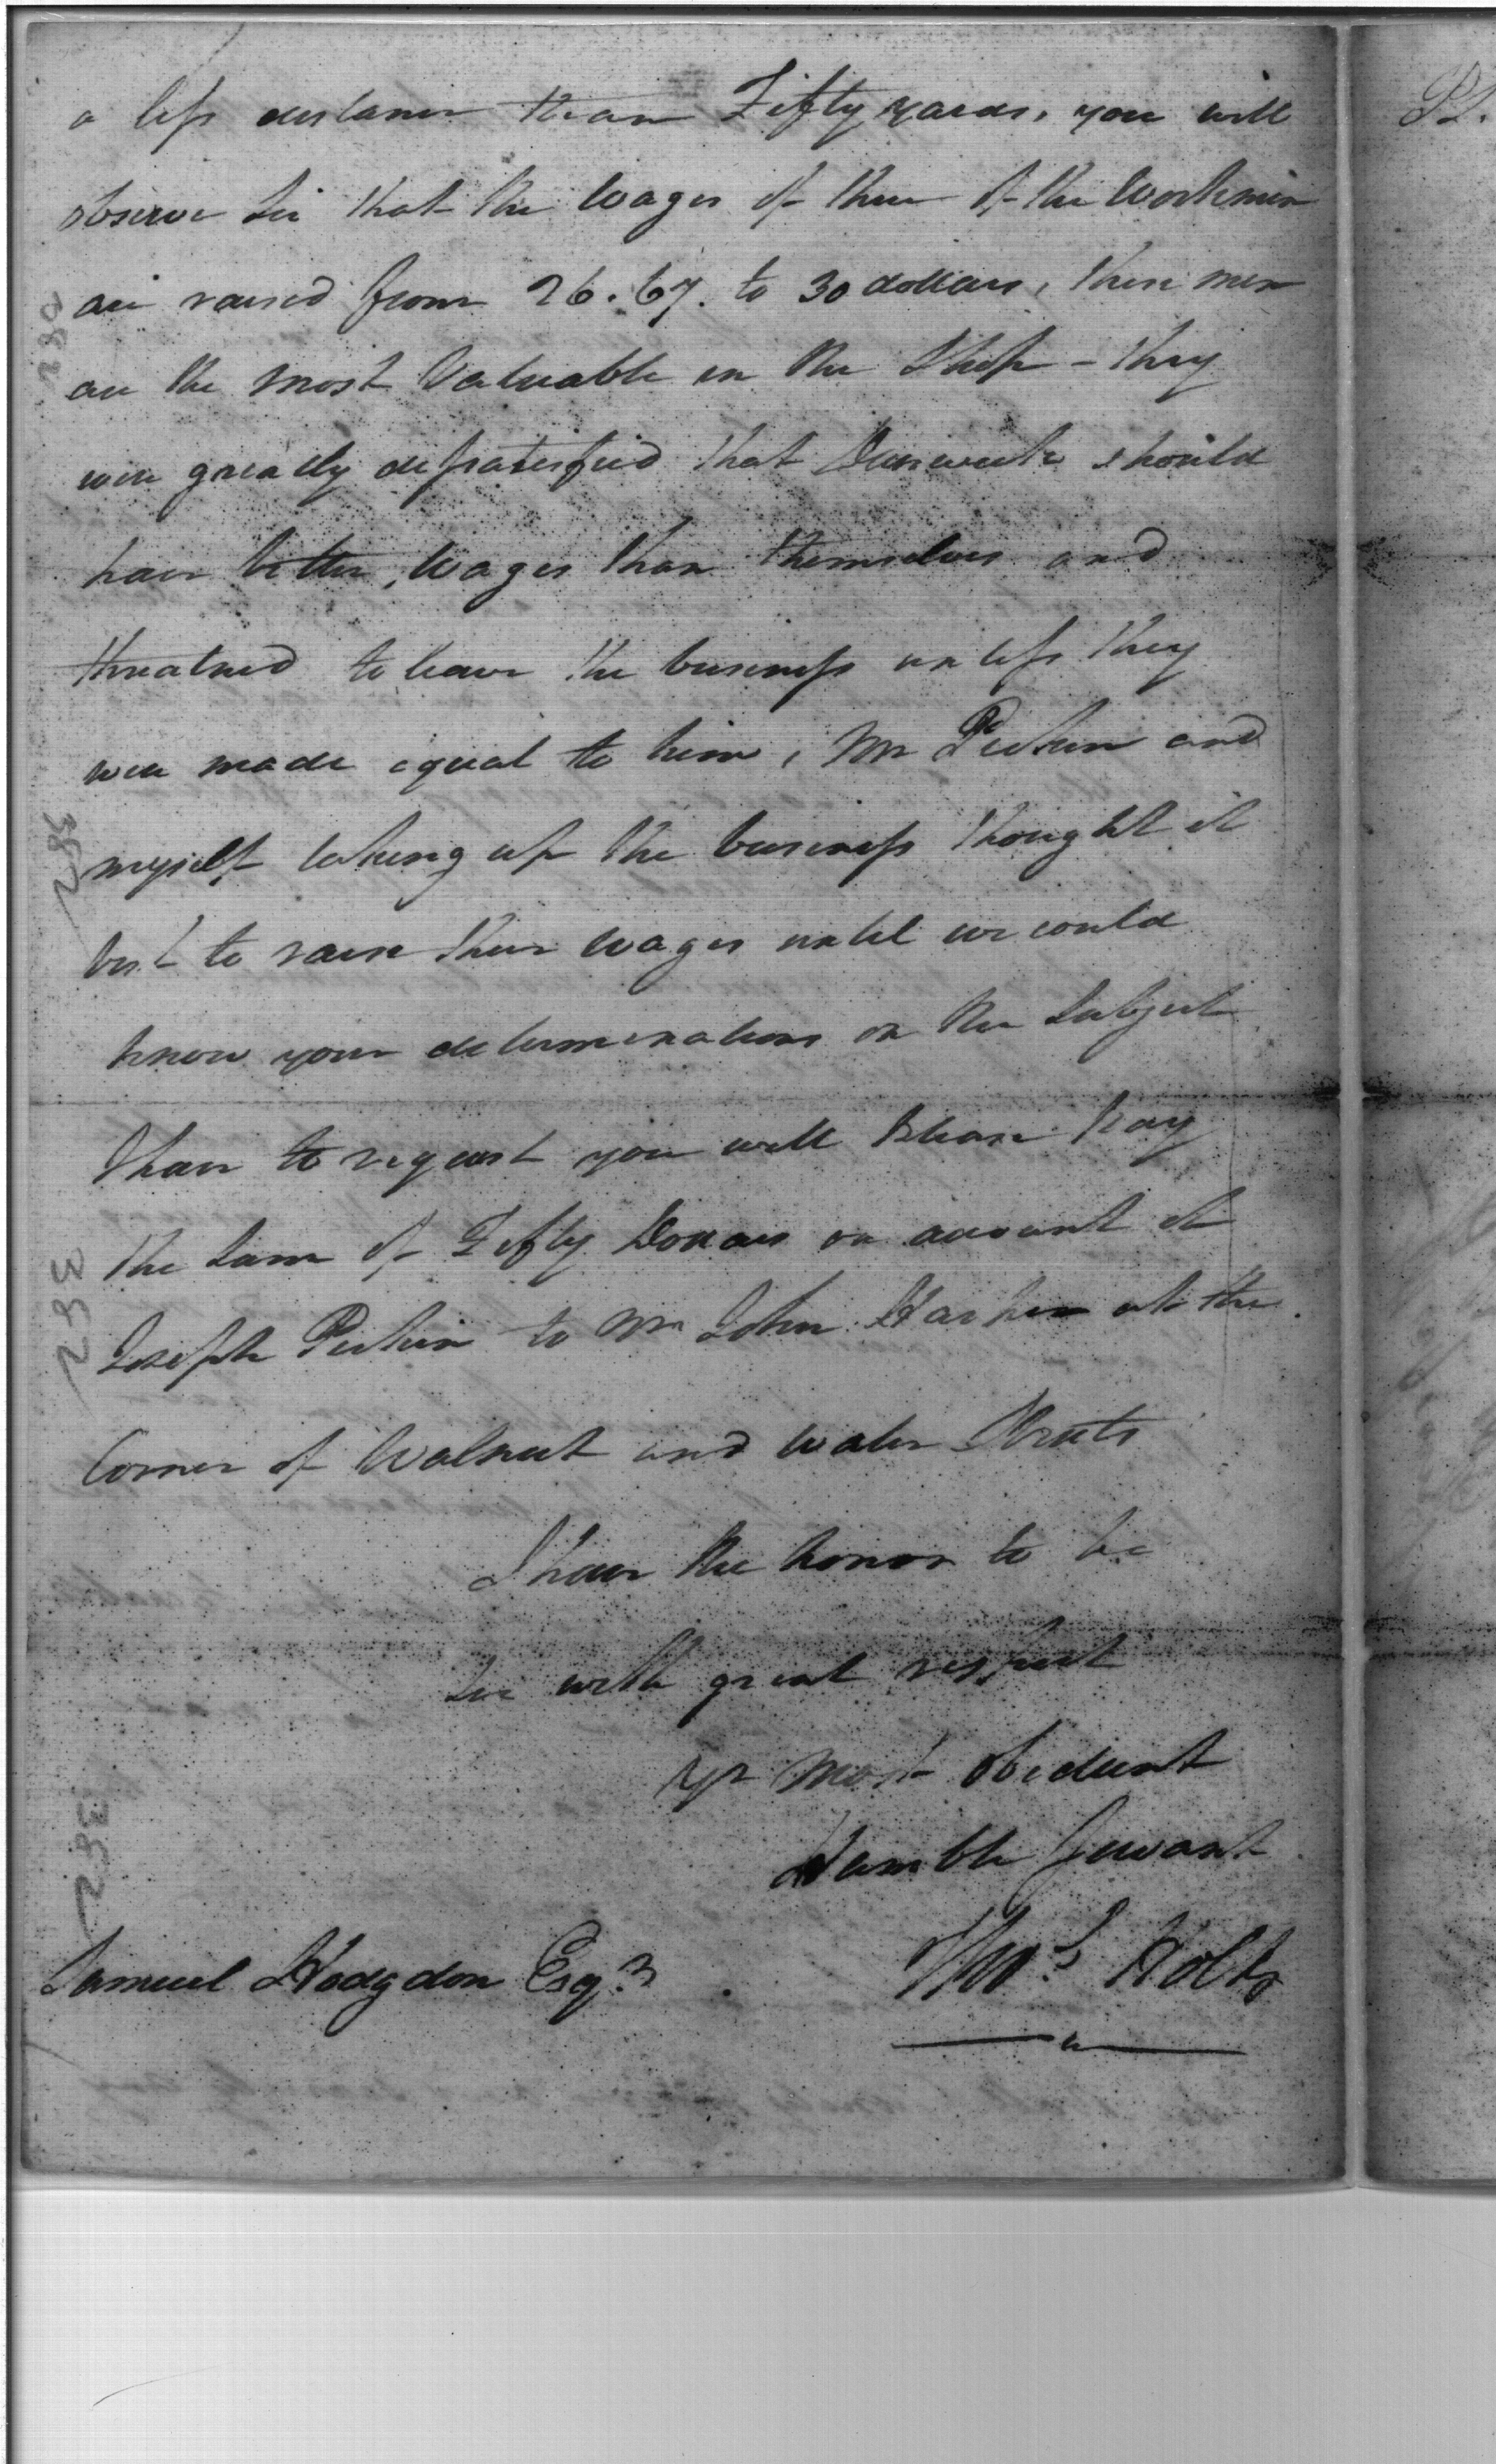 a less distance than Fifty yards, you will
observe Sir that the Wages of three of the Workmen
are raised from 26.67. to 30 dollars, these men
are the most Valuable in the Shop - they
were greatly dissatisfied that should
have better Wages than themselves and
threatned to leave the business unless they
were made equal to him, Mr Perkin and
myself taking up the business thought it
best to raise their wages until we could
know your determinations on the Subject
I have to request you will Please Pay
the Sum of Fifty Dollars on account of
Joseph Perkin to Mr John at the
Corner of Walnut and Water Streets
I have the honor to be
Sir with great respect
Yr most obedient
Humble Servant
Samuel Hodgdon Esqr. Thos. Holts